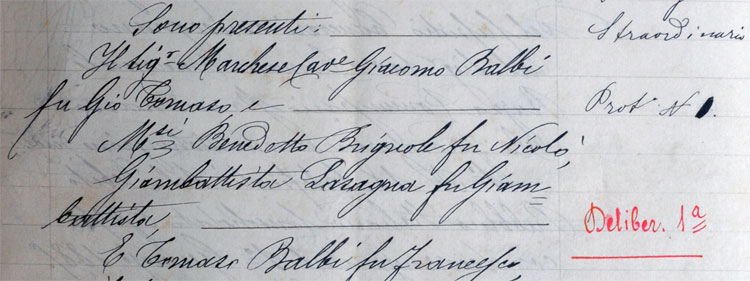 Sono presenti:
Il Sigr Marchese Cave Giacomo Balbi
fu Gio Tomaso, e
Msi Benedetto Brignole fu Nicolò,
Giambattista Lasagna fu Giam=
battista,
E Tomaso Balbi fu Francesco,
Straordinario
Prot° N 1.
Deliber. 1a